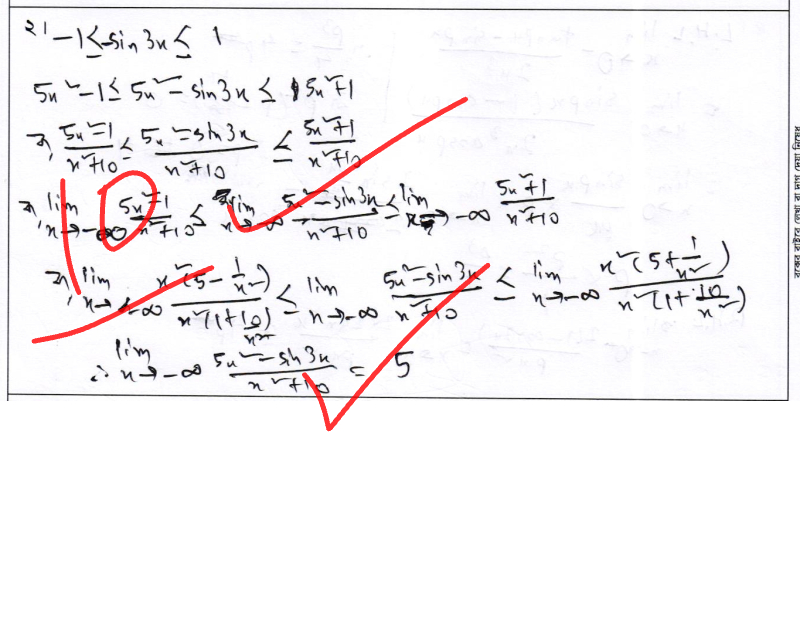 ২। -1 ≤ -sin 3x ≤ 1
5x² - 1 ≤ 5x² - sin3x ≤ 5x² + 1
বা, (5x² - 1)/(x² + 10) ≤ (5x² - sin3x)/(x² + 10) ≤ (5x² + 1)/(x² + 10)
বা, lim x→-∞ (5x² - 1)/(x² + 10) ≤ lim x→-∞ (5x² - sin3x)/(x² + 10) ≤ lim x→-∞ (5x² + 1)/(x² + 10)
বা, lim x→-∞ x²(5 - 1/x²)/x²(1 + 10/x²) ≤ lim x→-∞ (5x² - sin3x)/(x² + 10) ≤ lim x→-∞ x²(5 + 1/x²)/x²(1 + 10/x²)
∴ lim x→-∞ (5x² - sin3x)/(x² + 10) = 5